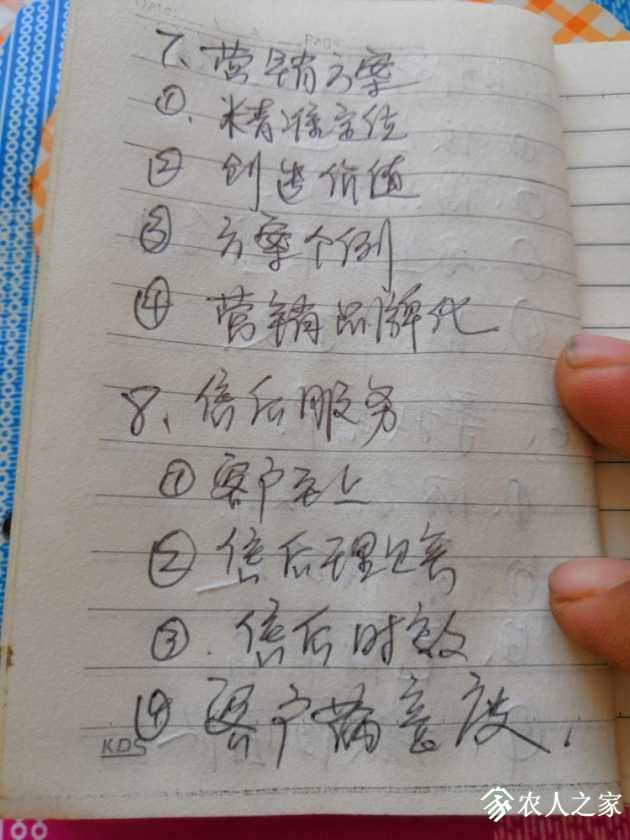 Date:
Page
7、营销方案
①、精准定位
② 创造价值
③ 方案个例
④ 营销品牌化
8、售后服务
①客户至上
② 售后理赔
③.售后时效
④ 客户满意度.
KDS
农人之家